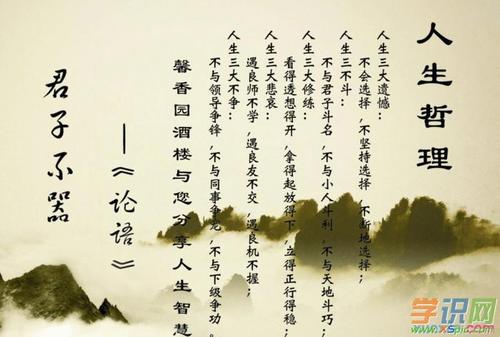 人生哲理
人生三大遗憾:
不会选择,不坚持选择,不断地选择;
人生三不斗:
不与君子斗名,不与小人斗利,不与天地斗巧;
人生三大修练:
看得透想得开,拿得起放得下,立得正行得稳;
人生三大悲哀:
遇良师不学,遇良友不交,遇良机不握;
人生三大不争:
不与领导争锋,不与同事争宠,不与下级争功.
馨香园酒楼与您分享人生智慧
—《论语》
君子不器
学识网